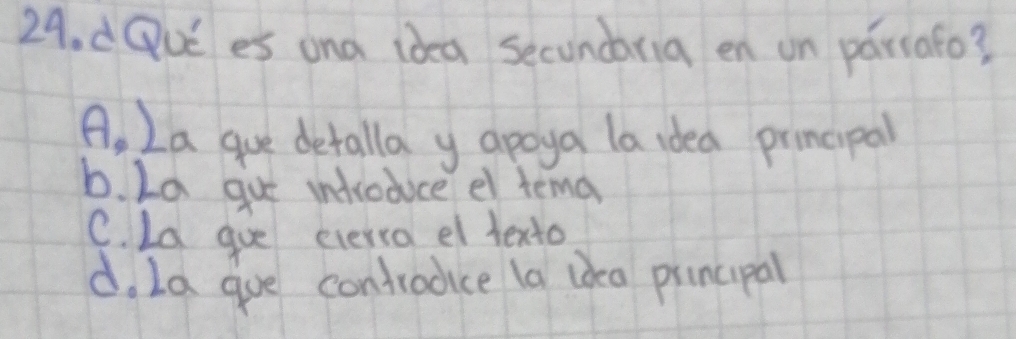 29. ¿Qué es una idea secundaria en un párrafo?
A. La que detalla y apoya la idea principal
b. La que introduce el tema
C. La que cierra el texto
d. La que contradice la idea principal